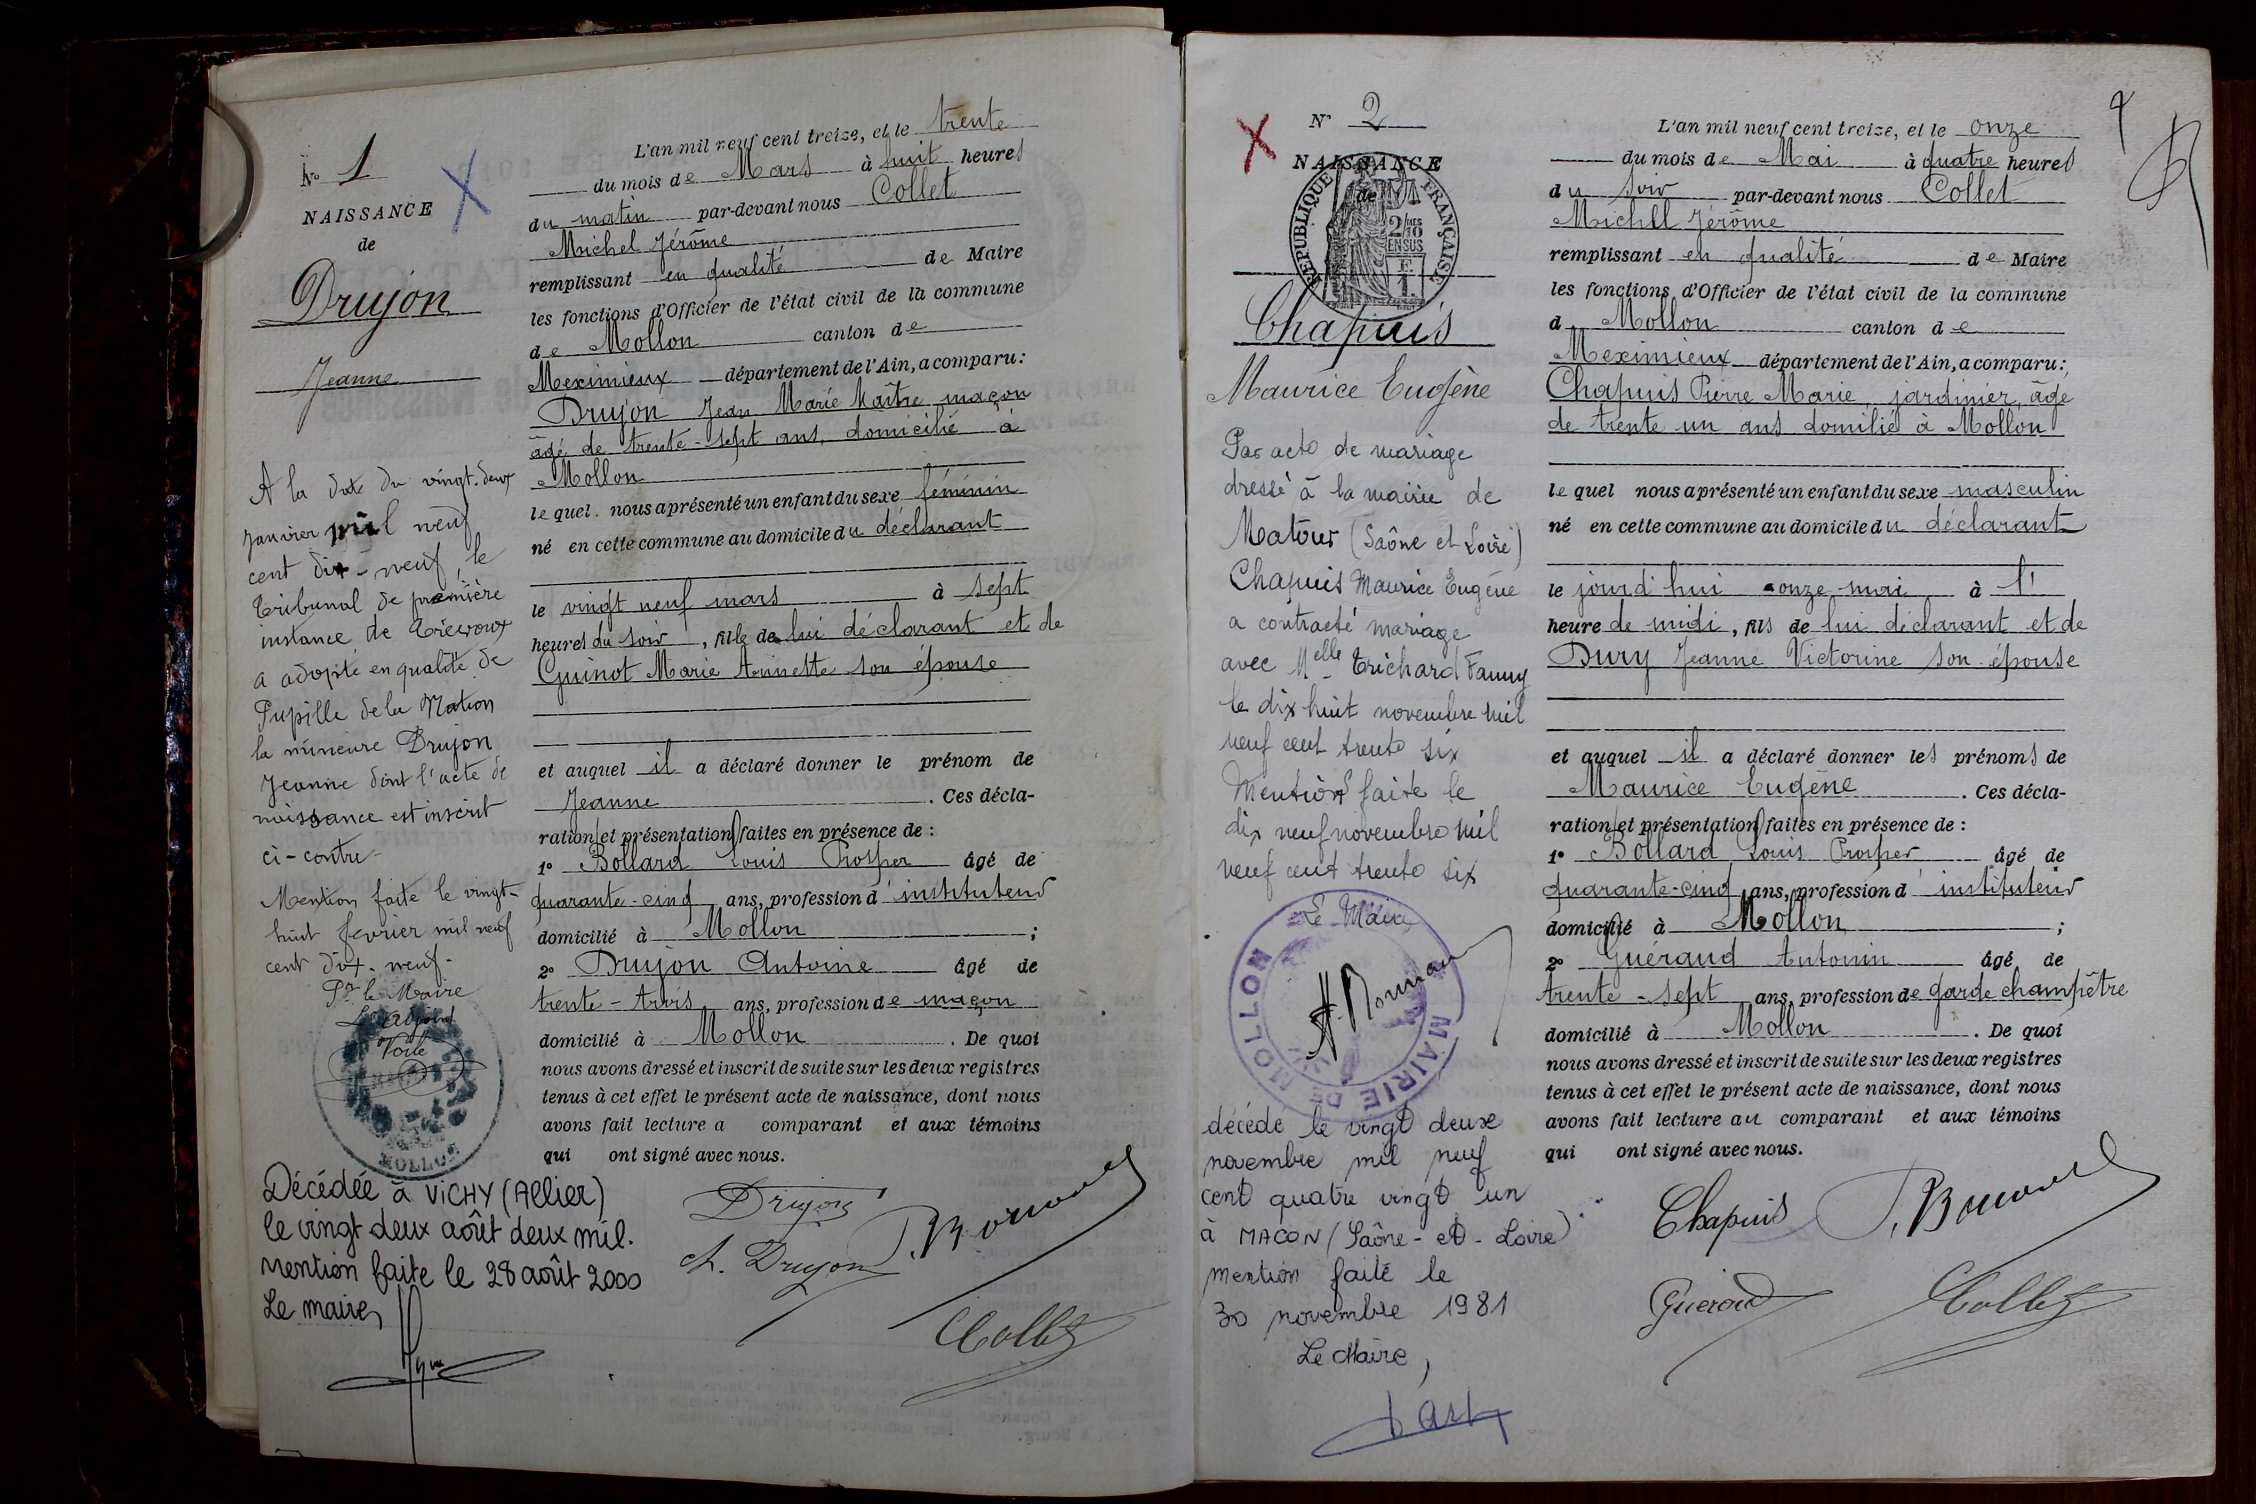 N° 1
NAISSANCE
de
Drujon
Jeanne
A la date du vingt-deux
janvier mil neuf
cent dix-neuf, le
Tribunal de première
instance de Trévoux
a adopté en qualité de
Pupille de la Nation
la mineure Drujon
Jeanne dont l'acte de
naissance est inscrit
ci-contre.
Mention faite le vingt-
huit février mil neuf
cent dix-neuf.
Pr le Maire
MOLLON
Décédée à VICHY (Allier)
le vingt deux août deux mil.
mention faite le 28 août 2000
Le maire,
L'an mil neuf cent treize, et le trente
du mois de Mars à huit heures
du matin par-devant nous Collet
Michel Jérôme
remplissant en qualité de Maire
les fonctions d'Officier de l'état civil de la commune
de Mollon canton de
Meximieux département de l'Ain, a comparu:
Drujon Jean Marie Maître maçon
âgé de trente-sept ans, domicilié à
Mollon
lequel nous a présenté un enfant du sexe féminin
né en cette commune au domicile du déclarant
le vingt neuf mars à sept
heures du soir, fille de lui déclarant et de
Guinot Marie Annette son épouse
et auquel il a déclaré donner le prénom de
Jeanne. Ces décla-
ration et présentation faites en présence de :
1° Bollard Louis Prosper âgé de
quarante-cinq ans, profession d'instituteur
domicilié à Mollon ;
2° Drujon Antoine âgé de
trente-trois ans, profession de maçon
domicilié à Mollon. De quoi
nous avons dressé et inscrit de suite sur les deux registres
tenus à cet effet le présent acte de naissance, dont nous
avons fait lecture a comparant et aux témoins
qui ont signé avec nous.
Drujon
A. Drujon
Collet
N° 2
NAISSANCE
de
REPUBLIQUE FRANÇAISE
2/10 EN SUS
Chapuis
Maurice Eugène
Par acte de mariage
dressé à la mairie de
Matour (Saône et Loire)
Chapuis Maurice Eugène
a contracté mariage
avec Melle Trichard Fanny
le dix huit novembre mil
neuf cent trente six
Mention faite le
dix neuf novembre mil
neuf cent trente six
Le Maire
MAIRIE DE MOLLON
décédé le vingt deux
novembre mil neuf
cent quatre vingt un
à MACON (Saône-et-Loire)
mention faite le
30 novembre 1981
Le Maire,
L'an mil neuf cent treize, et le onze
du mois de Mai à quatre heures
du soir par-devant nous Collet
Michel Jérôme
remplissant en qualité de Maire
les fonctions d'Officier de l'état civil de la commune
d Mollon canton de
Meximieux département de l'Ain, a comparu:
Chapuis Pierre Marie, jardinier, âgé
de trente un ans domilié à Mollon
lequel nous a présenté un enfant du sexe masculin
né en cette commune au domicile du déclarant
le jourd'hui onze mai à l'
heure de midi, fils de lui déclarant et de
Dury Jeanne Victorine son épouse
et auquel il a déclaré donner les prénoms de
Maurice Eugène. Ces décla-
ration et présentation faites en présence de :
1° Bollard Louis Prosper âgé de
quarante-cinq ans, profession d'instituteur
domicilié à Mollon ;
2° Guéraud Antonin âgé de
trente-sept ans, profession de garde champêtre
domicilié à Mollon. De quoi
nous avons dressé et inscrit de suite sur les deux registres
tenus à cet effet le présent acte de naissance, dont nous
avons fait lecture au comparant et aux témoins
qui ont signé avec nous.
Chapuis
Gueraud
Collet